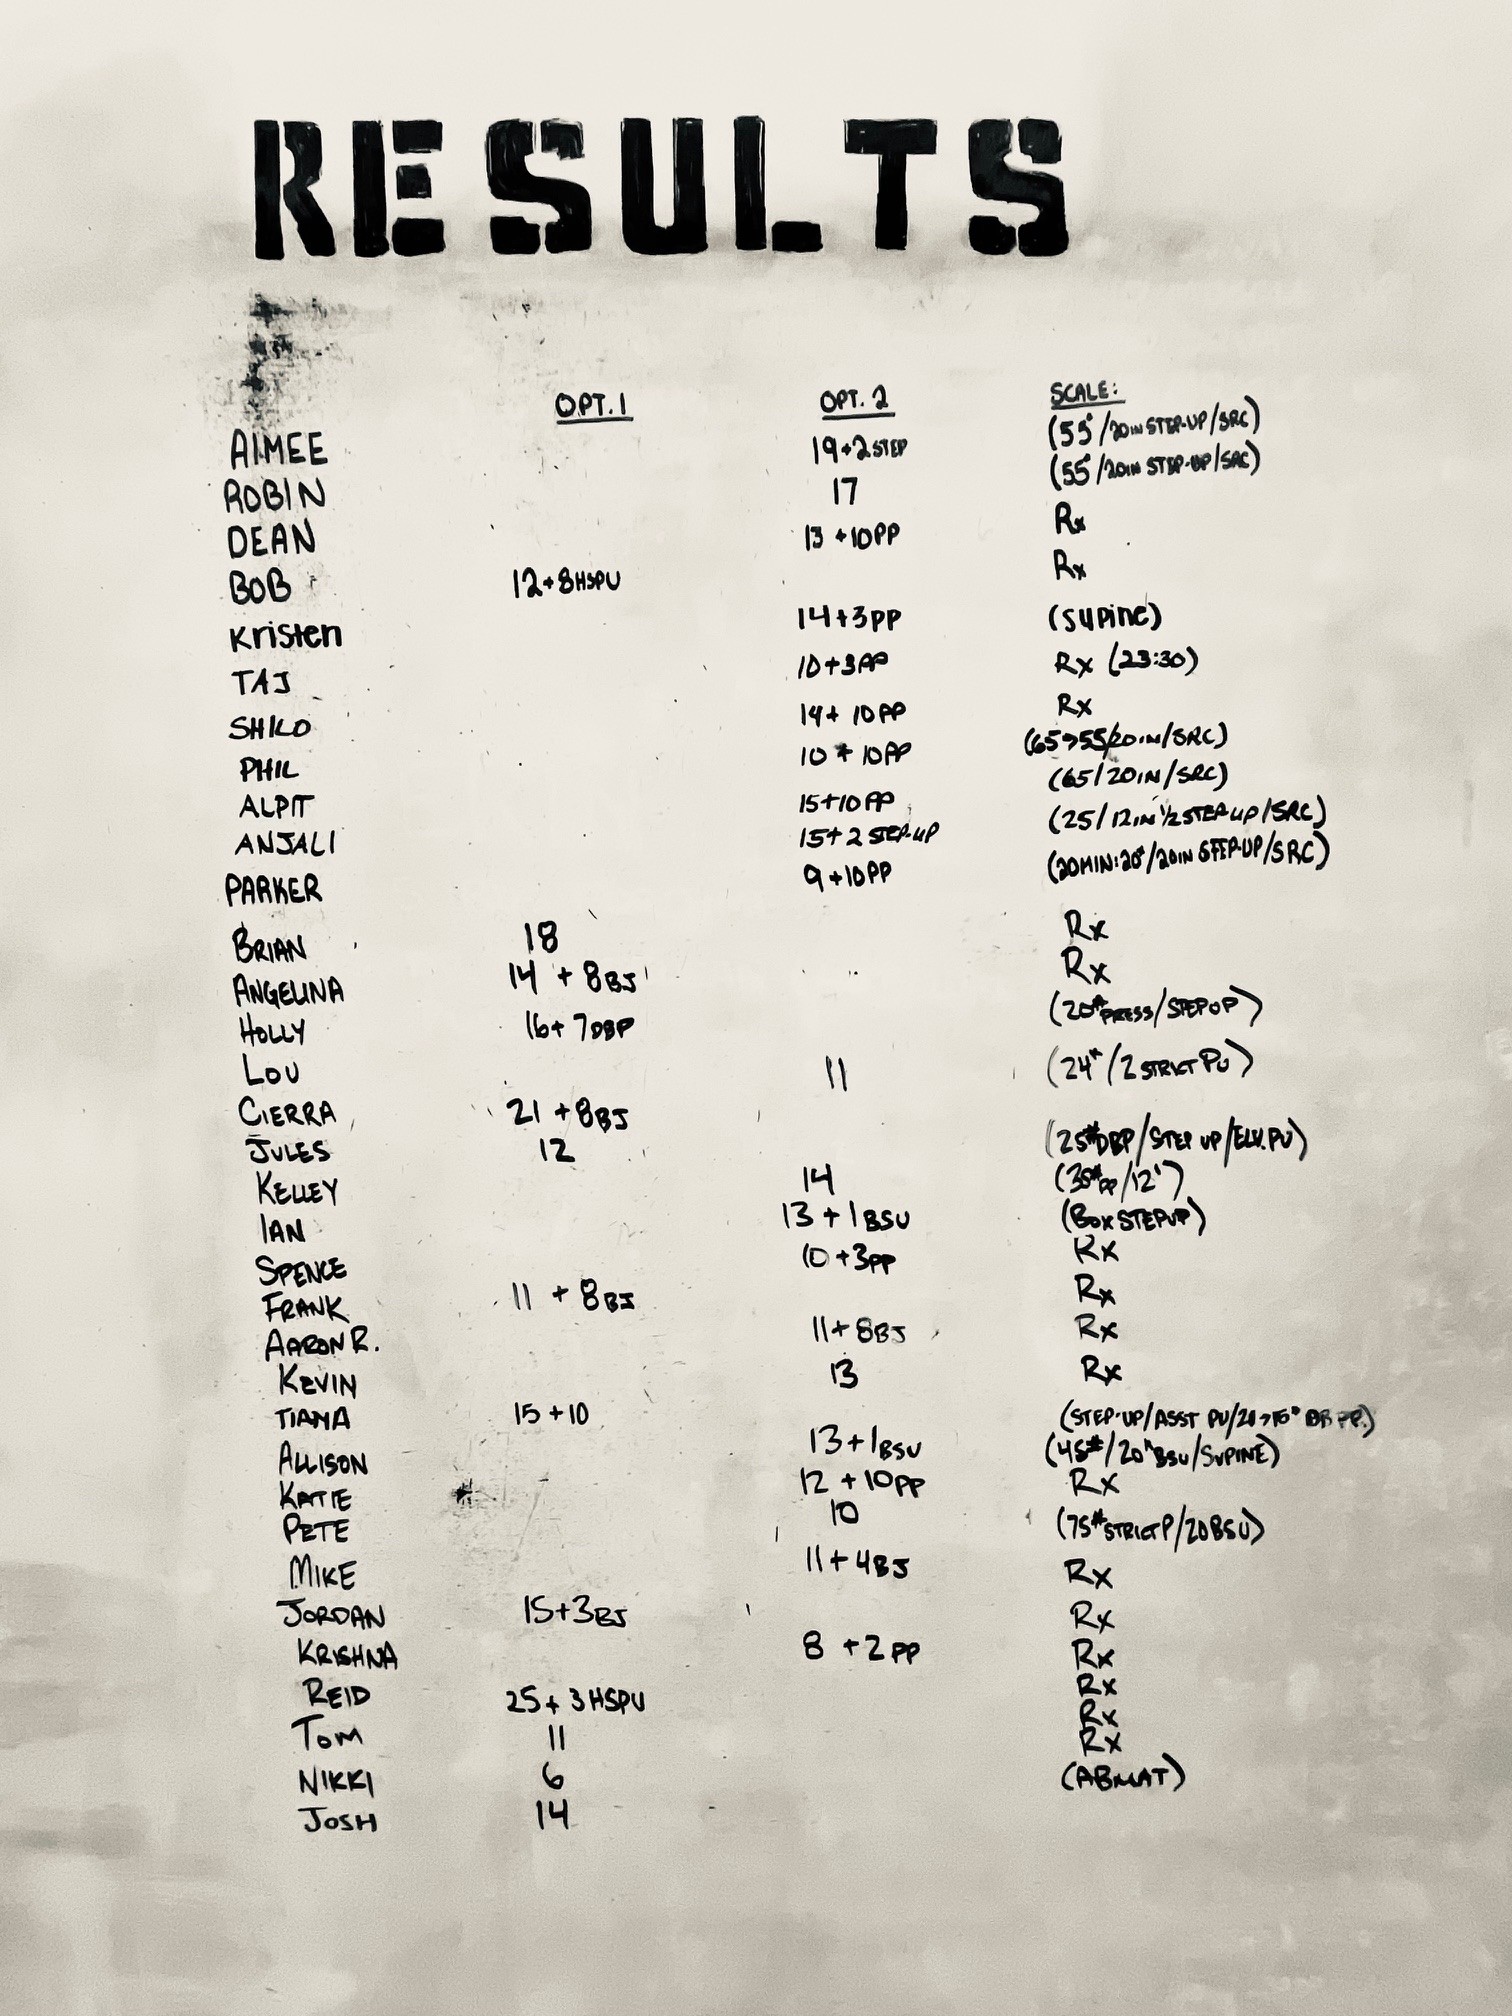 RESULTS
OPT.1 OPT. 2 SCALE:
AIMEE 19+2 STEP (55#/20IN STEP-UP/SRC)
ROBIN 17 (55#/20IN STEP-UP/SRC)
DEAN 13 +10PP Rx
BOB 12+8HSPU Rx
Kristen 14+3PP (supine)
TAJ 10+3PP Rx (23:30)
SHILO 14+ 10PP Rx
PHIL 10 + 10PP (65→55/20IN/SRC)
ALPIT 15+10PP (65/20IN/SRC)
ANJALI 15+2 STEP-UP (25/12IN 1/2 STEP-UP/SRC)
PARKER 9+10PP (20MIN:20#/20IN STEP-UP/SRC)
BRIAN 18 Rx
ANGELINA 14 + 8BJ Rx
HOLLY 16+ 7DBP (20# PRESS/STEP UP)
LOU 11 (24"/2 STRICT PU)
CIERRA 21 +8BJ
JULES 12 (25# DBP/STEP UP/ELV. PU)
KELLEY 14 (35# PP/12')
IAN 13 + 1BSU (BOX STEPUP)
SPENCE 10 +3PP Rx
FRANK 11 + 8BJ Rx
AARON R. 11+ 8BJ Rx
KEVIN 13 Rx
TIANA 15+10 (STEP-UP/ASST PU/20→15# DB PP.)
ALLISON 13+1BSU (45#/20" BSU/SUPINE)
KATIE 12 +10PP Rx
PETE 10 (75# STRICT P/20 BSU)
MIKE 11+4BJ Rx
JORDAN 15+3BJ Rx
KRISHNA 8 +2PP Rx
REID 25+ 3HSPU Rx
TOM 11 Rx
NIKKI 6 Rx
JOSH 14 (ABMAT)